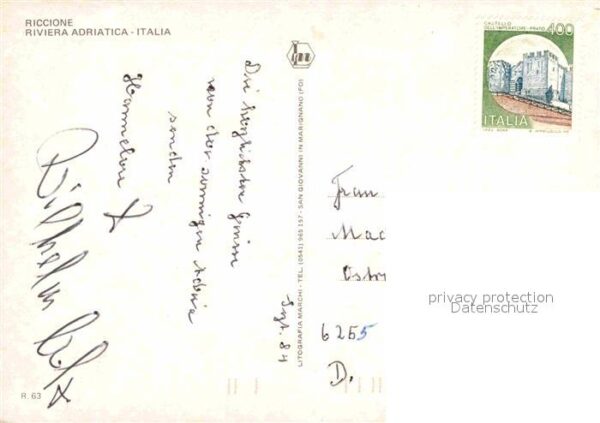 RICCIONE
RIVIERA ADRIATICA - ITALIA
CASTELLO
DELL'IMPERATORE - PRATO 400
ITALIA
Die herzlichsten Grüsse
von der sonnigen Adria
senden
Hannelore +
Wilhelm
Sept. 84
LITOGRAFIA MARCHI - TEL. (0541) 955 157 - SAN GIOVANNI IN MARIGNANO (FO)
Frau
Mac
Ostr
6255
D.
privacy protection
Datenschutz
R. 63